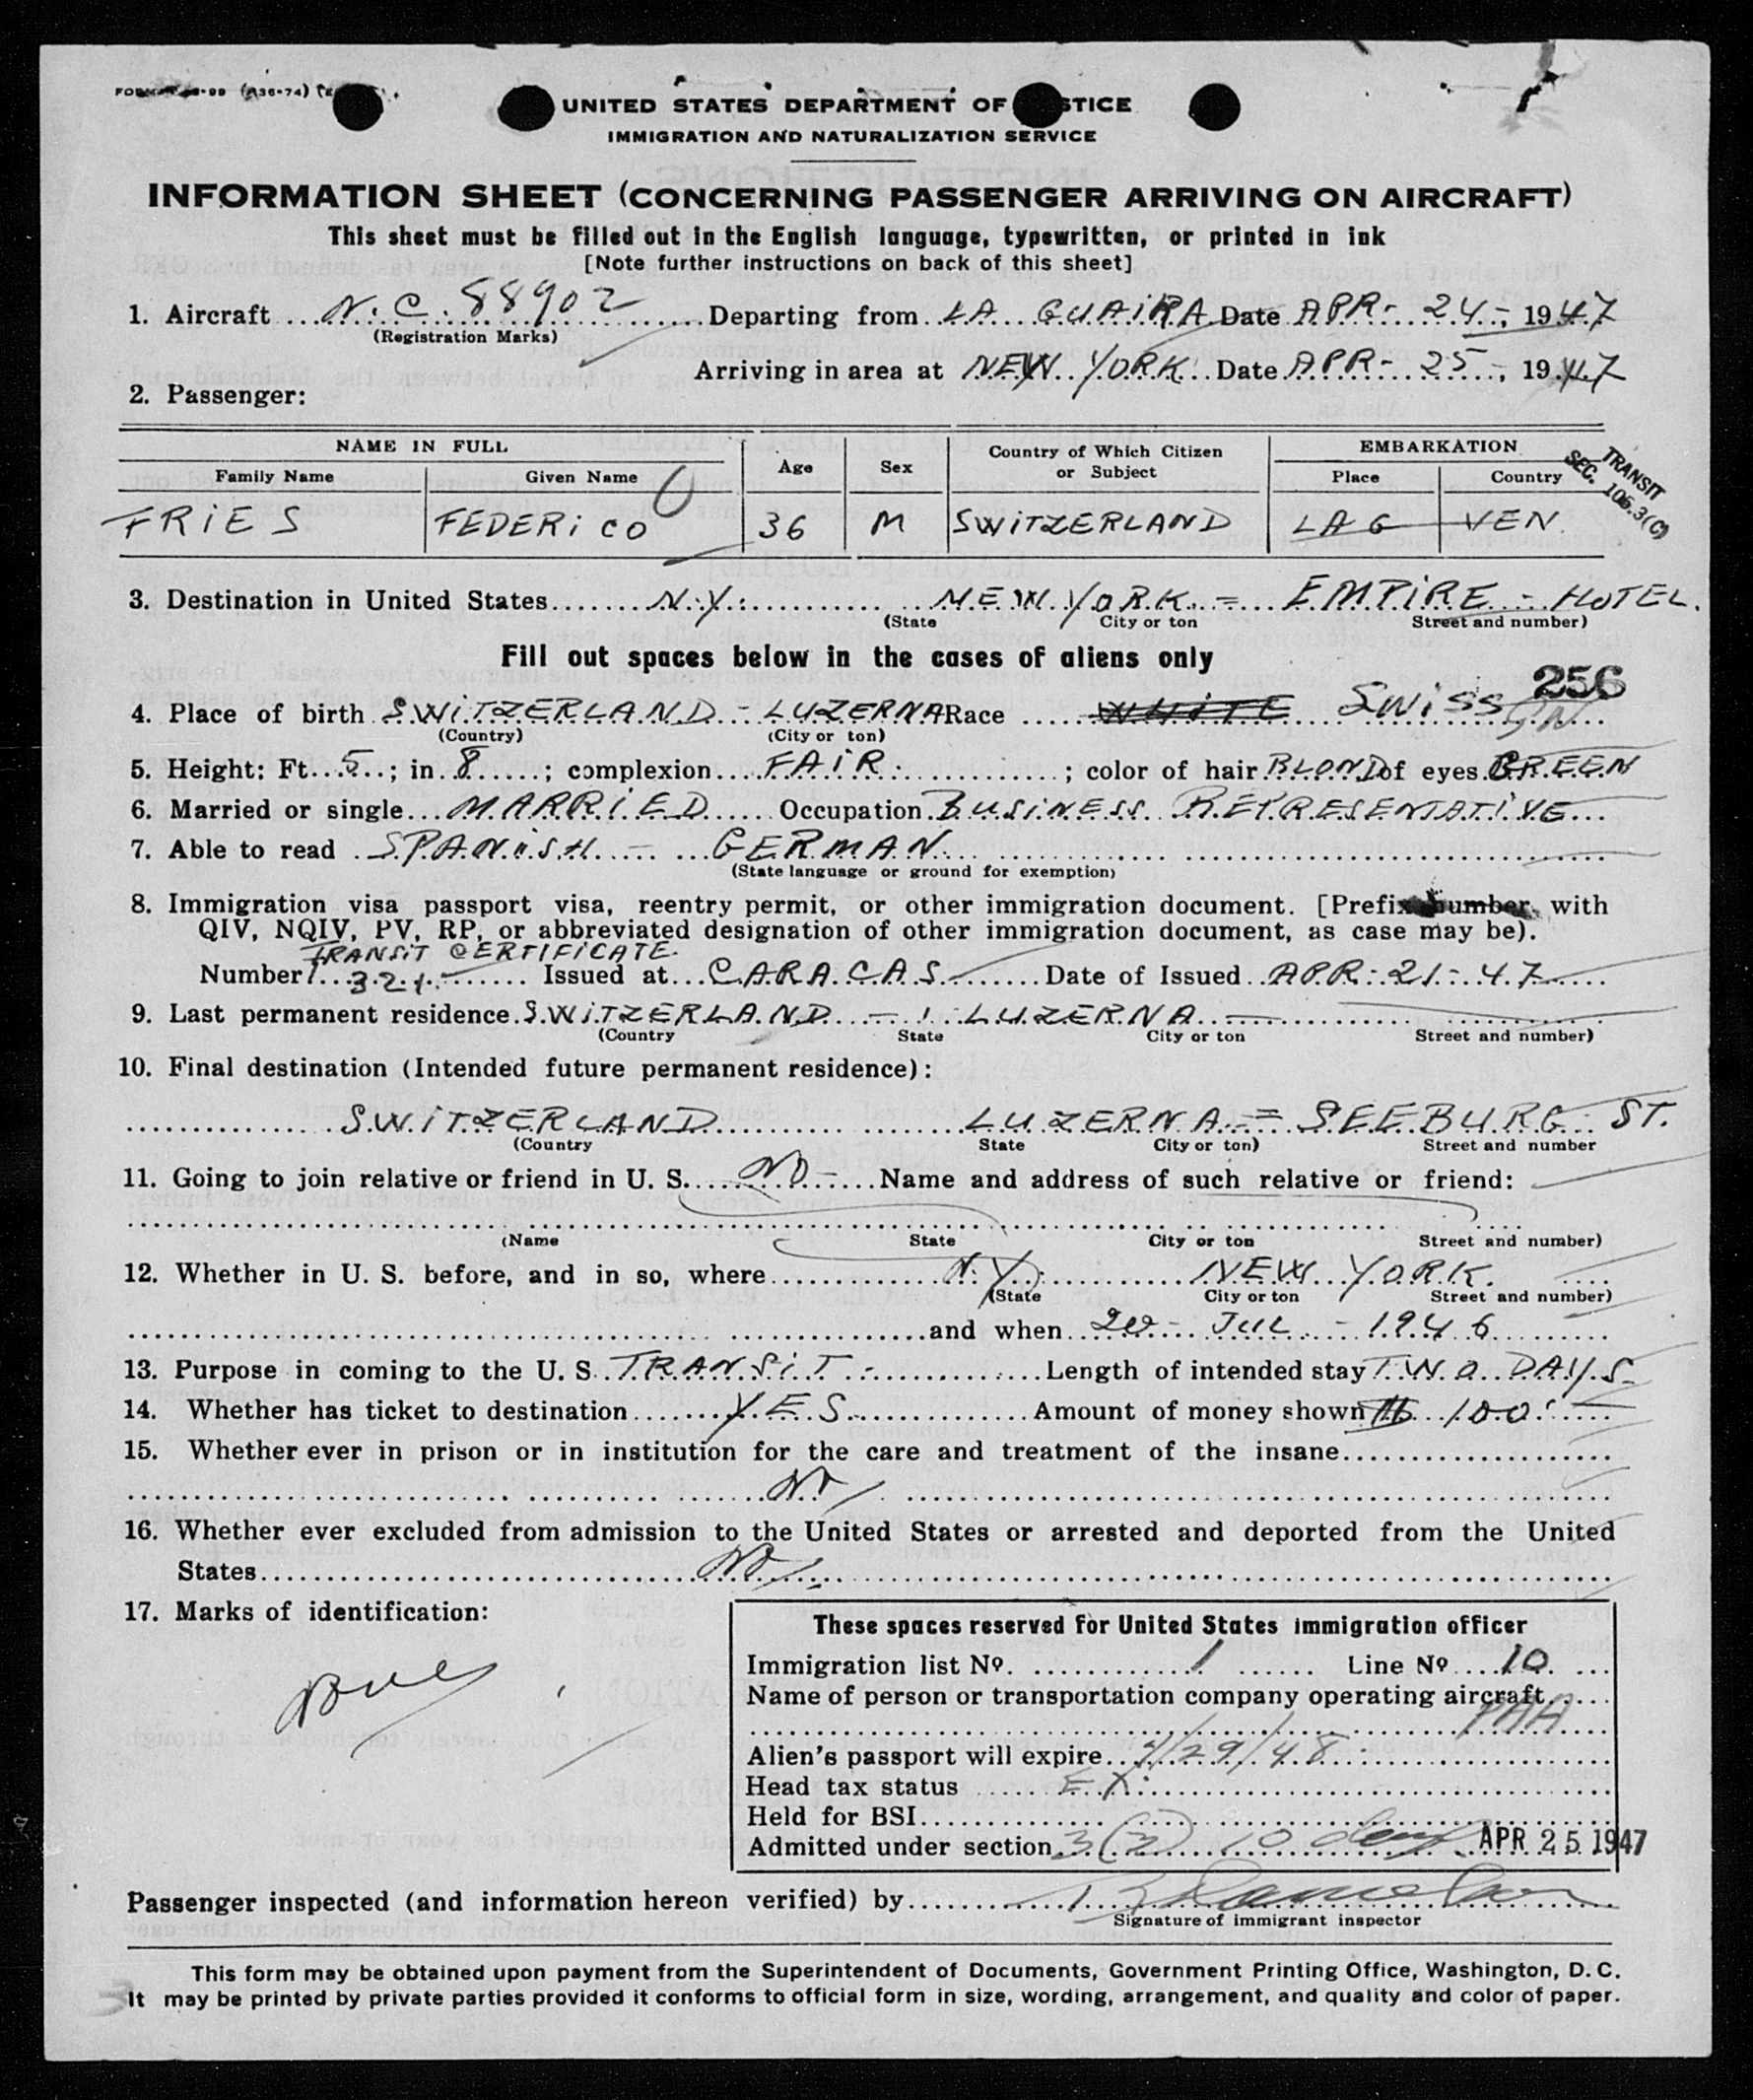 UNITED STATES DEPARTMENT OF STICE
IMMIGRATION AND NATURALIZATION SERVICE
INFORMATION SHEET (CONCERNING PASSENGER ARRIVING ON AIRCRAFT)
This sheet must be filled out in the English language, typewritten, or printed in ink
[Note further instructions on back of this sheet]
1. Aircraft N.C. 88902 Departing from LA GUAIRA Date APR- 24-, 1947
(Registration Marks)
Arriving in area at NEW YORK Date APR- 25-, 1947
2. Passenger:
NAME IN FULL Age Sex Country of Which Citizen or Subject EMBARKATION
Family Name Given Name Place Country
TRANSIT
SEC. 106.3(C)
FRIES FEDERICO 36 M SWITZERLAND LAG VEN.
3. Destination in United States N.Y. NEW YORK = EMPIRE - HOTEL.
(State City or ton Street and number)
Fill out spaces below in the cases of aliens only
256
4. Place of birth SWITZERLAND - LUZERNA Race WHITE SWISS
(Country) (City or ton)
5. Height: Ft. 5; in. 8; complexion FAIR.; color of hair BLOND of eyes GREEN
6. Married or single MARRIED Occupation BUSINESS REPRESENTATIVE
7. Able to read SPANISH - GERMAN.
(State language or ground for exemption)
8. Immigration visa passport visa, reentry permit, or other immigration document. [Prefix number with
QIV, NQIV, PV, RP, or abbreviated designation of other immigration document, as case may be).
TRANSIT CERTIFICATE.
Number 321. Issued at CARACAS Date of Issued APR. 21-47
9. Last permanent residence SWITZERLAND - LUZERNA
(Country State City or ton Street and number)
10. Final destination (Intended future permanent residence):
SWITZERLAND LUZERNA = SEEBURG. ST.
(Country State City or ton) Street and number
11. Going to join relative or friend in U. S. NO- Name and address of such relative or friend:
(Name State City or ton Street and number)
12. Whether in U. S. before, and in so, where N.Y. NEW YORK.
(State City or ton Street and number)
and when 20- JUL - 1946
13. Purpose in coming to the U. S. TRANSIT.- Length of intended stay TWO DAYS-
14. Whether has ticket to destination YES Amount of money shown $ 100.
15. Whether ever in prison or in institution for the care and treatment of the insane
No
16. Whether ever excluded from admission to the United States or arrested and deported from the United
States No
17. Marks of identification:
These spaces reserved for United States immigration officer
Immigration list No. 1 Line No 10.
Name of person or transportation company operating aircraft
PAA
Alien's passport will expire 7/29/48
Head tax status EX.
Held for BSI
Admitted under section 3(3) 10 days APR 25 1947
Passenger inspected (and information hereon verified) by
Signature of immigrant inspector
This form may be obtained upon payment from the Superintendent of Documents, Government Printing Office, Washington, D. C.
It may be printed by private parties provided it conforms to official form in size, wording, arrangement, and quality and color of paper.